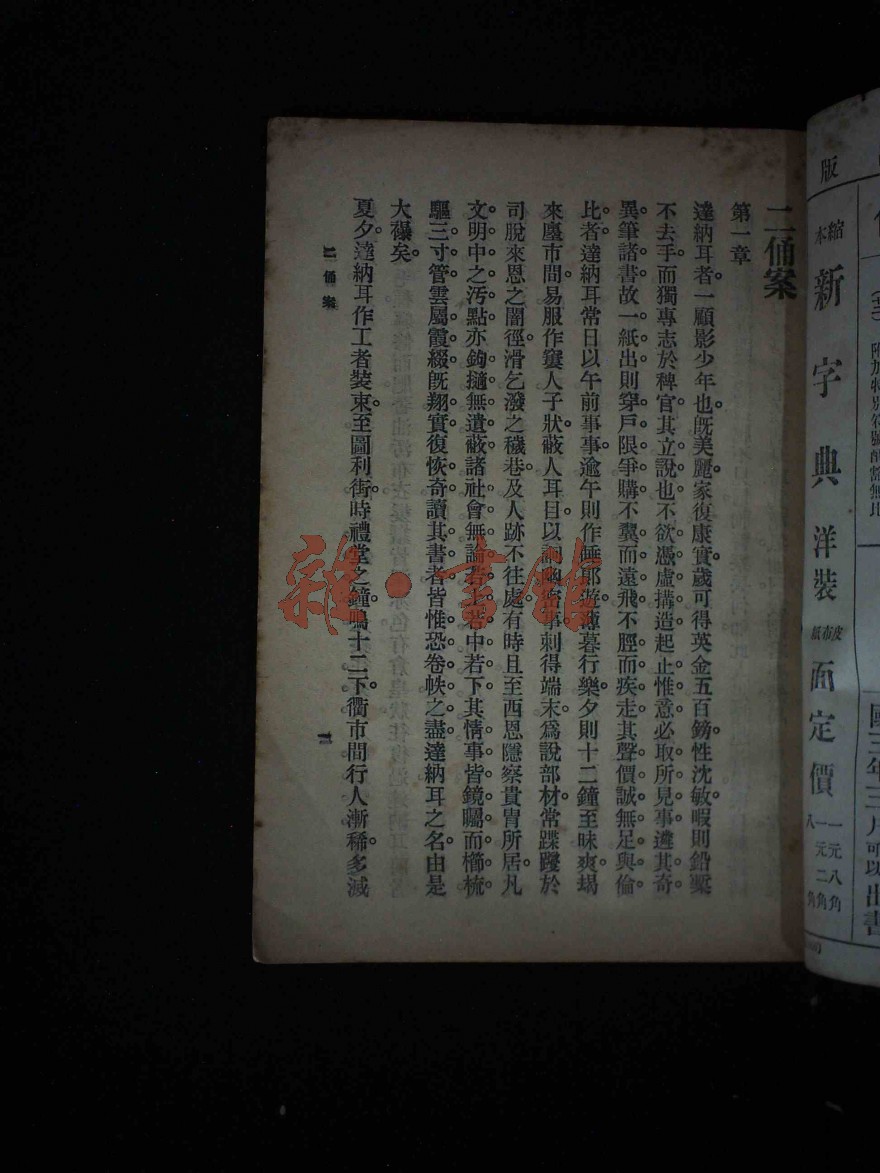 版
縮本
新字典
洋裝
皮布紙
面定價
一元八角
一元二角
八角
國三年三月可以出書
二俑案
第一章
達納耳者一顧影少年也。旣美麗家復康實歲可得英金五百鎊。性沈敏暇則鉛槧
不去手。而獨專志於稗官。其立說也。不欲憑虛搆造起止惟意必取所見事遴其奇
異筆諸書故一紙出則穿戶限爭購不翼而遠飛不脛而疾走其聲價誠無足與倫
比者達納耳常日以午前事事逾午則作
薄暮行樂夕則十二鐘至昧爽朅
來廛市間易服作窶人子狀蔽人耳目以詷幽密事刺得端末爲說部材常蹀躞於
司脫來恩之闇徑滑乞潑之穢巷及人跡不往處有時且至西恩隱察貴冑所居凡
文明中之汚點亦鉤擿無遺蔽諸社會無論若上若中若下其情事皆鏡矚而櫛梳
驅三寸管雲屬霞綴旣翔實復恢奇讀其書者皆惟恐卷帙之盡達納耳之名由是
大襮矣。
夏夕達納耳作工者裝束至圖利街時禮堂之鐘鳴十二下衢市間行人漸稀多滅
二俑案
雜·書館